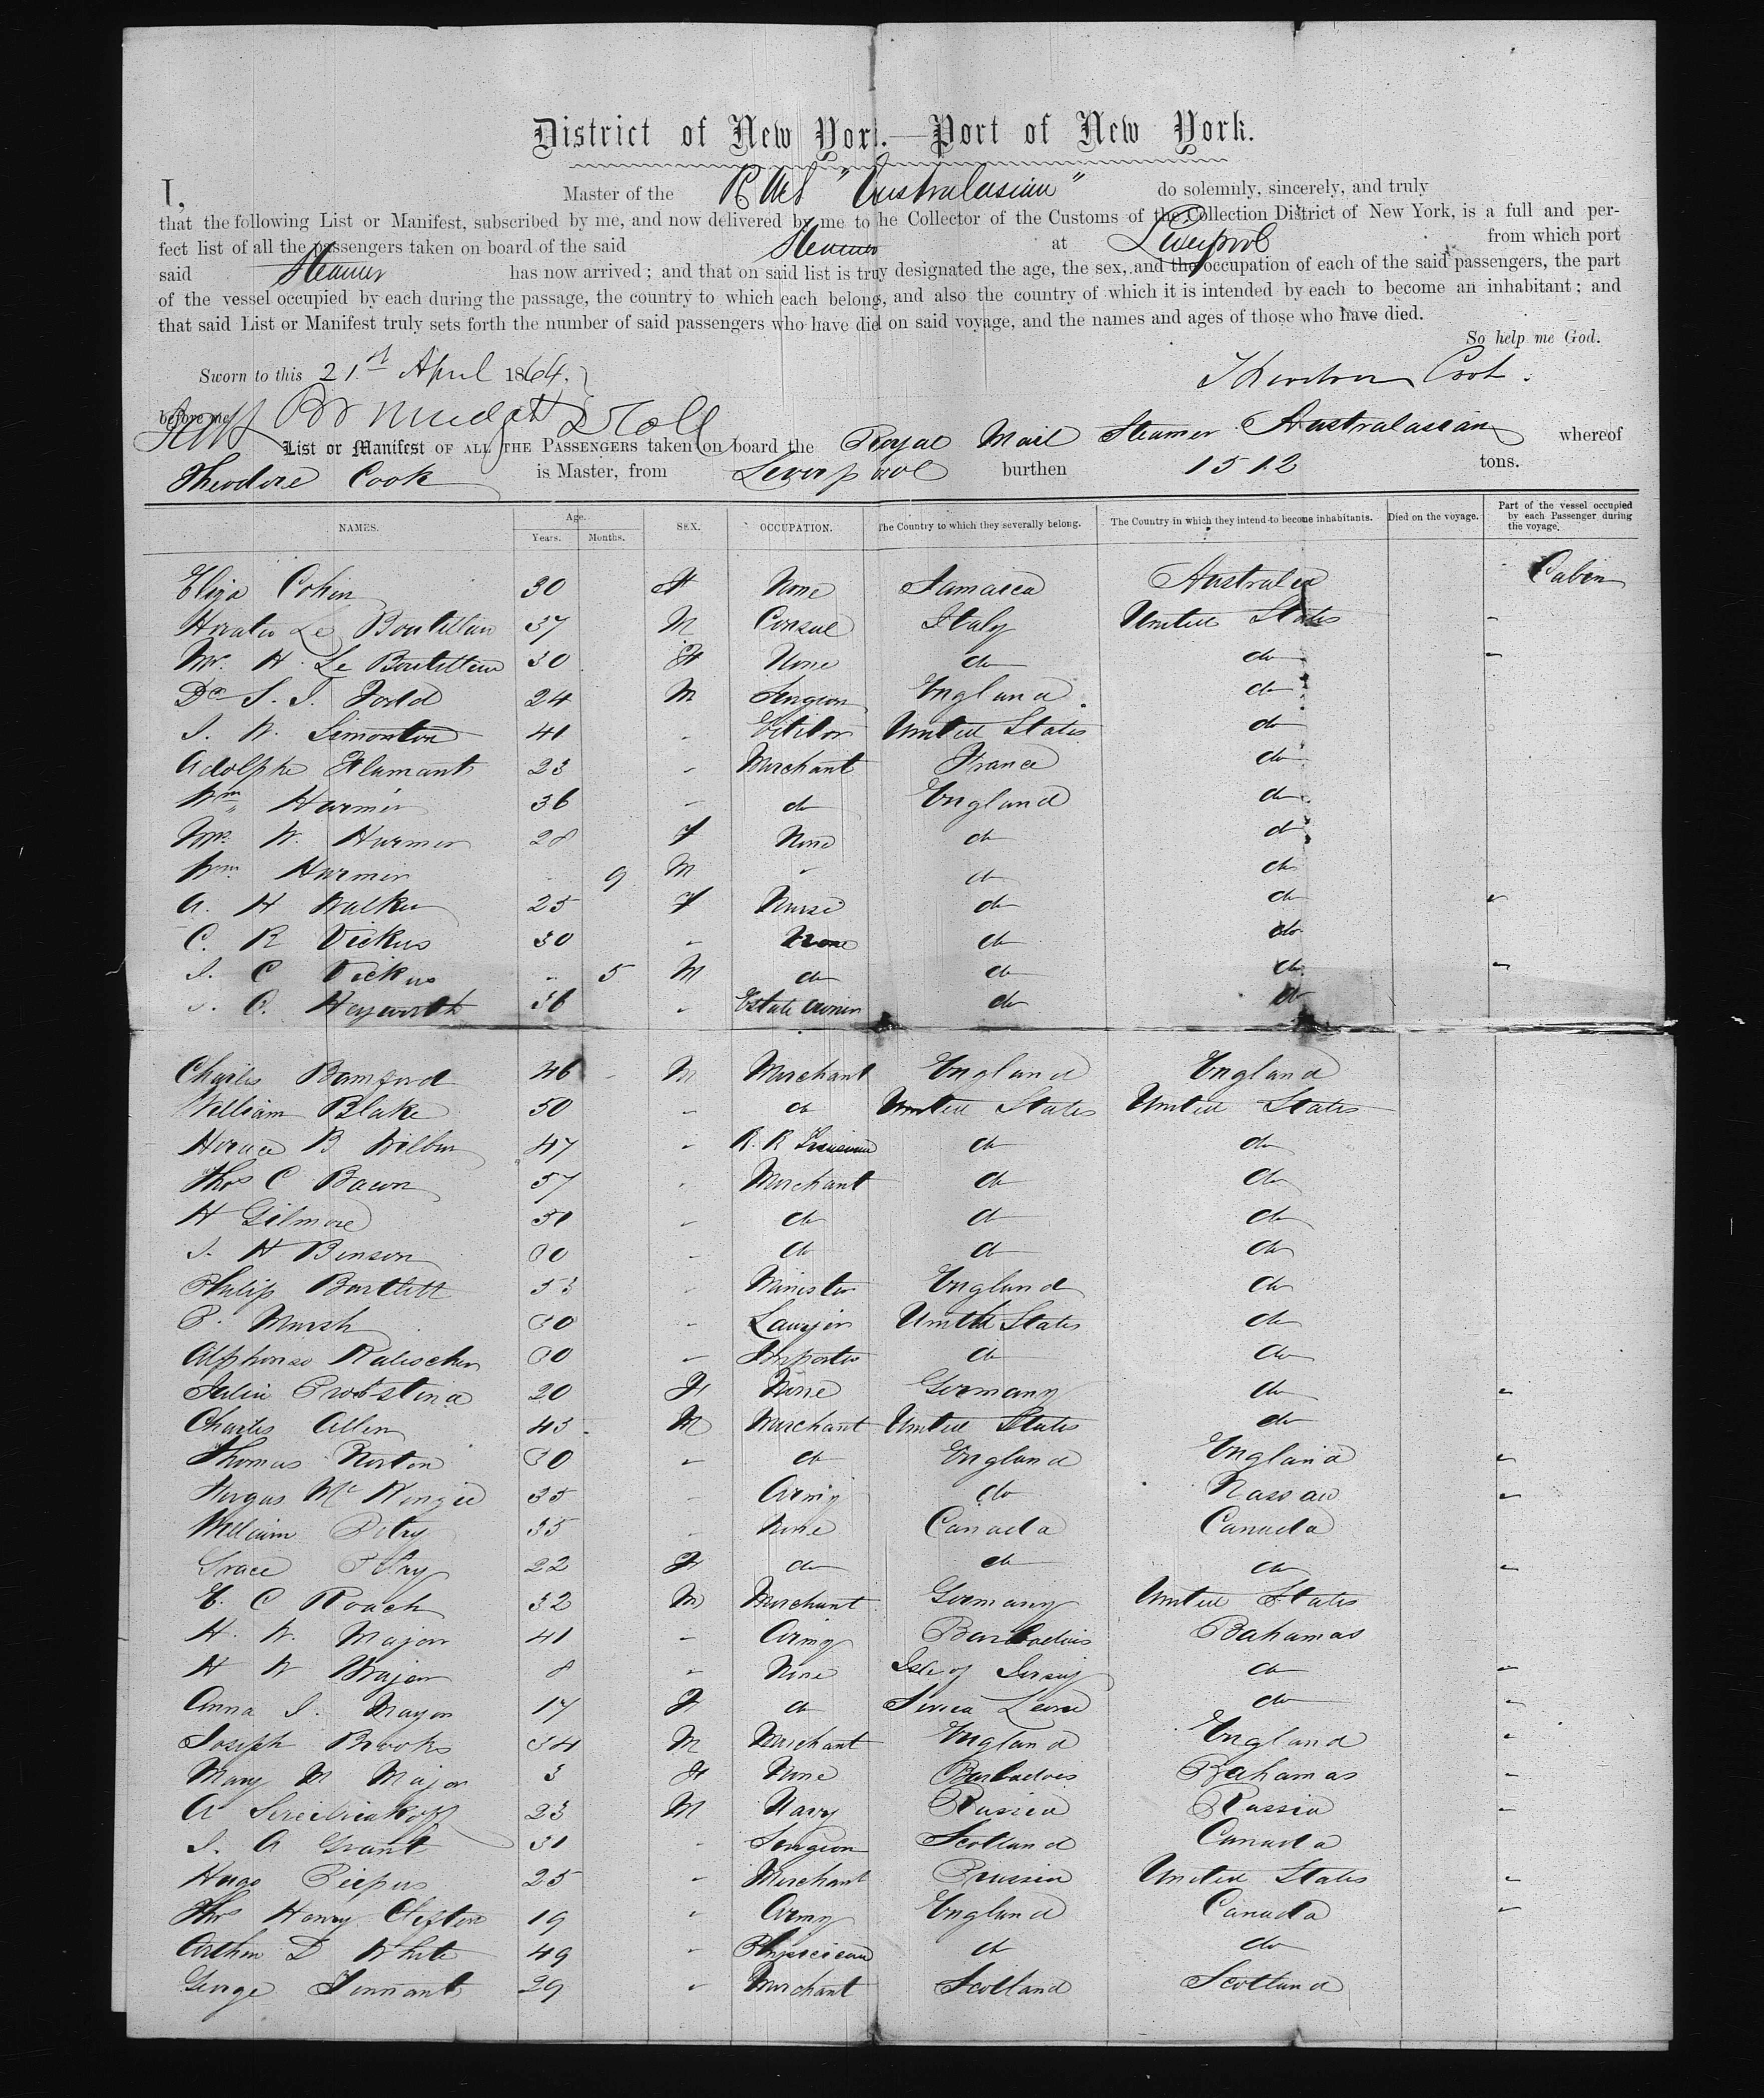 District of New York.—Port of New York.
I, Master of the RMS "Australasian" do solemnly, sincerely, and truly
that the following List or Manifest, subscribed by me, and now delivered by me to he Collector of the Customs of the Collection District of New York, is a full and per-
fect list of all the passengers taken on board of the said Steamer at Liverpool from which port
said Steamer has now arrived; and that on said list is truy designated the age, the sex, and the occupation of each of the said passengers, the part
of the vessel occupied by each during the passage, the country to which each belong, and also the country of which it is intended by each to become an inhabitant; and
that said List or Manifest truly sets forth the number of said passengers who have died on said voyage, and the names and ages of those who have died.
So help me God.
Sworn to this 21st April 1864. Theodore Cook.
before me
List or Manifest OF ALL THE PASSENGERS taken on board the Royal Mail Steamer Australasian whereof
Theodore Cook is Master, from Liverpool burthen 1512 tons.
NAMES. Age. Years. Months. SEX. OCCUPATION. The Country to which they severally belong. The Country in which they intend to become inhabitants. Died on the voyage. Part of the vessel occupied by each Passenger during the voyage.
Eliza Cohen 30 F None Jamaica Australia Cabin
Horatio Le Boutillier 37 M Consul Italy United States "
Mrs. H. Le Boutillier 30 F None do do "
Dr S. J. Todd 24 M Surgeon England do
J. W. Simonton 41 " Editor United States do
Adolphe Flamant 23 " Merchant France do
Wm Harmer 36 " do England do
Mrs. W. Harmer 28 F None do do
Wm. Harmer 9 M " do do
A. H Walker 25 F Nurse do do "
C. R Vickers 30 " None do do
J. C Vickers 5 M do do do "
O. Heyworth 36 " Estate owner do do
Charles Bamford 46 M Merchant England England
William Blake 50 " do United States United States
Horace B Wilbur 47 " R. R do do
Thos C Bacon 57 " Merchant do do
H Gilmore 31 " do do do
J. H Benson 30 " do do do
Philip Bartlett 33 " Minister England do
P. Marsh 30 " Lawyer United States do
Alphonso Kalischer 30 " Importer do do
Julia 20 F None Germany do "
Charles Allen 43 M Merchant United States do
Thomas Norton 30 " do England England "
Fergus McKenzie 35 " Army do Nassau "
William Petry 35 " None Canada Canada
Grace Petry 22 F do do do "
E. C Roach 32 M Merchant Germany United States
H. W. Major 41 " Army Barbadoes Bahamas
H W Major 8 " None Isle of Jersey do "
Anna J. Major 17 F do Sierra Leone do "
Joseph Brooks 34 M Merchant England England "
Mary M Major 3 F None Barbadoes Bahamas "
A 23 M Navy Russia Russia "
J. A Grant 31 " Surgeon Scotland Canada
Hugo Piepers 25 " Merchant Prussia United States "
Thos Henry Clifton 19 " Army England Canada "
Arthur D White 49 " Physician do do
George Tennant 29 " Merchant Scotland Scotland